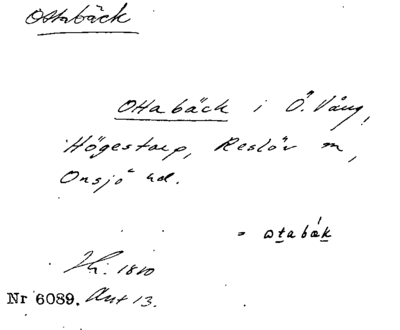 Ottabäck
Ottabäck i Ö. Vång,
Högestorp, Reslöv m,
Onsjö hd.
= otabák
1810
Nr 6089. Ant 13.